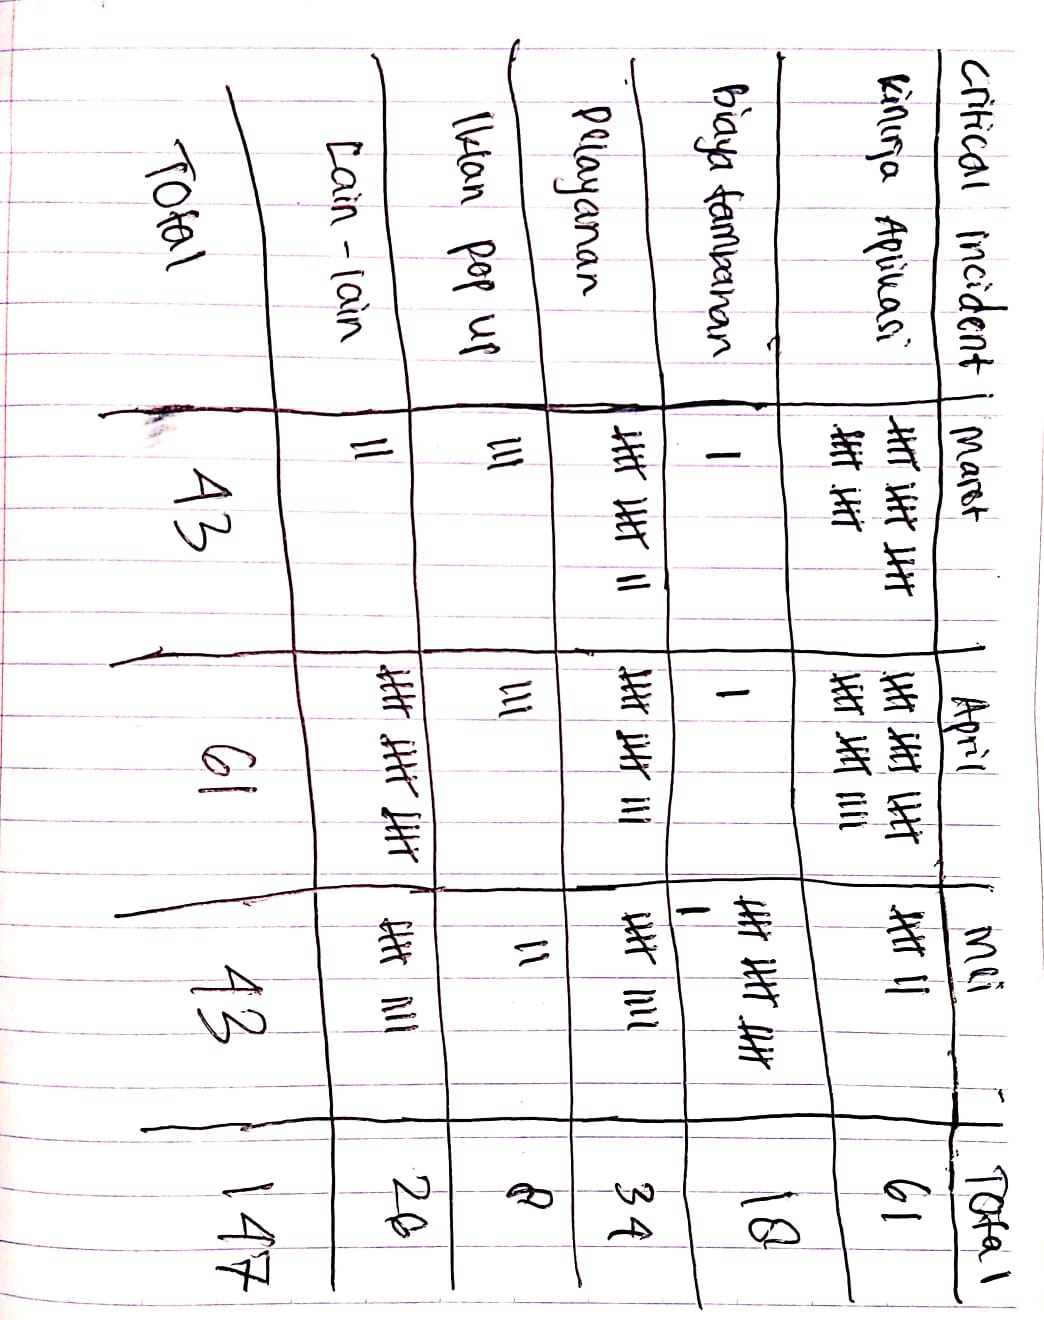 Critical incident | Maret | April | Mei | Total
Kinerja Aplikasi | 卌 卌 卌 卌 卌 | 卌 卌 卌 卌 卌 IIII | 卌 II | 61
biaya tambahan | I | I | 卌 卌 卌 I | 18
Pelayanan | 卌 卌 II | 卌 卌 III | 卌 IIII | 34
Iklan pop up | III | III | II | 8
Lain-lain | II | 卌 卌 卌 | 卌 IIII | 26
Total | 43 | 61 | 43 | 147